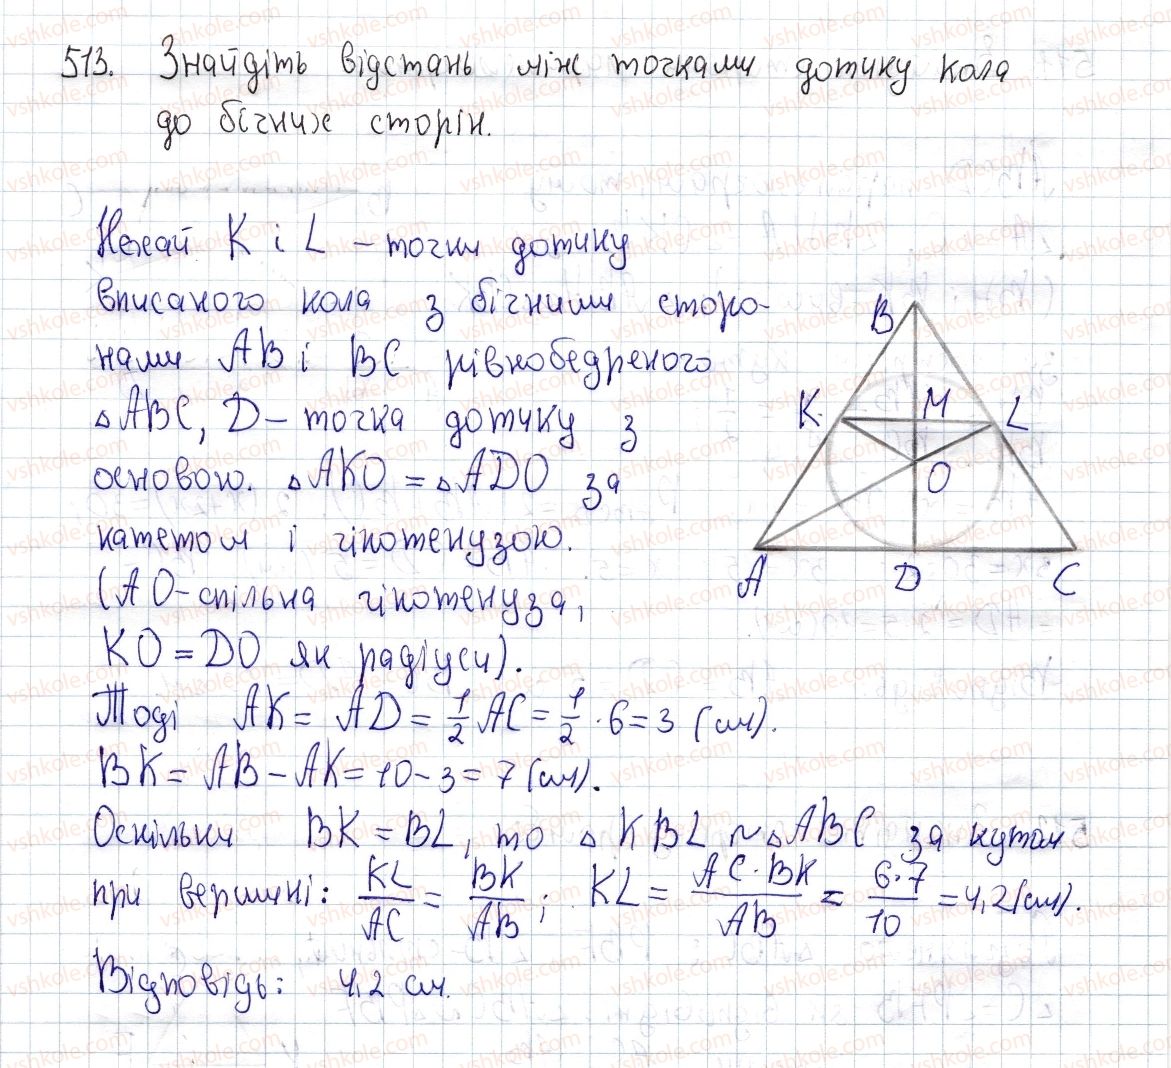 513. Знайдіть відстань між точками дотику кола
до бічних сторін.
Нехай K і L – точки дотику
вписаного кола з бічними сторо-
нами AB і BC рівнобедреного
△ABC, D – точка дотику з
основою. △AKO = △ADO за
катетом і гіпотенузою.
(AO – спільна гіпотенуза,
KO = DO як радіуси).
Тоді AK = AD = 1/2 AC = 1/2 · 6 = 3 (см).
BK = AB – AK = 10 – 3 = 7 (см).
Оскільки BK = BL, то △KBL ~ △ABC за кутом
при вершині: KL/AC = BK/AB; KL = AC · BK/AB = 6·7/10 = 4,2 (см).
Відповідь: 4,2 см.
B
K M L
O
A D C
vshkole.com